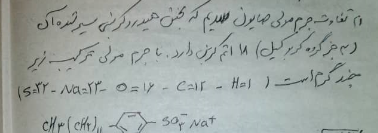 تفاوت جرم مولی صابون جامد که بخش هیدروکربنی سیر شده آن
(به جز گروه کربوکسیل) ۱۸ اتم کربن دارد. با جرم مولی ترکیب زیر
چند گرم است (S=۳۲ - Na=۲۳ - O=۱۶ - C=۱۲ - H=۱)
CH₃(CH₂)₁₁ SO₃⁻Na⁺